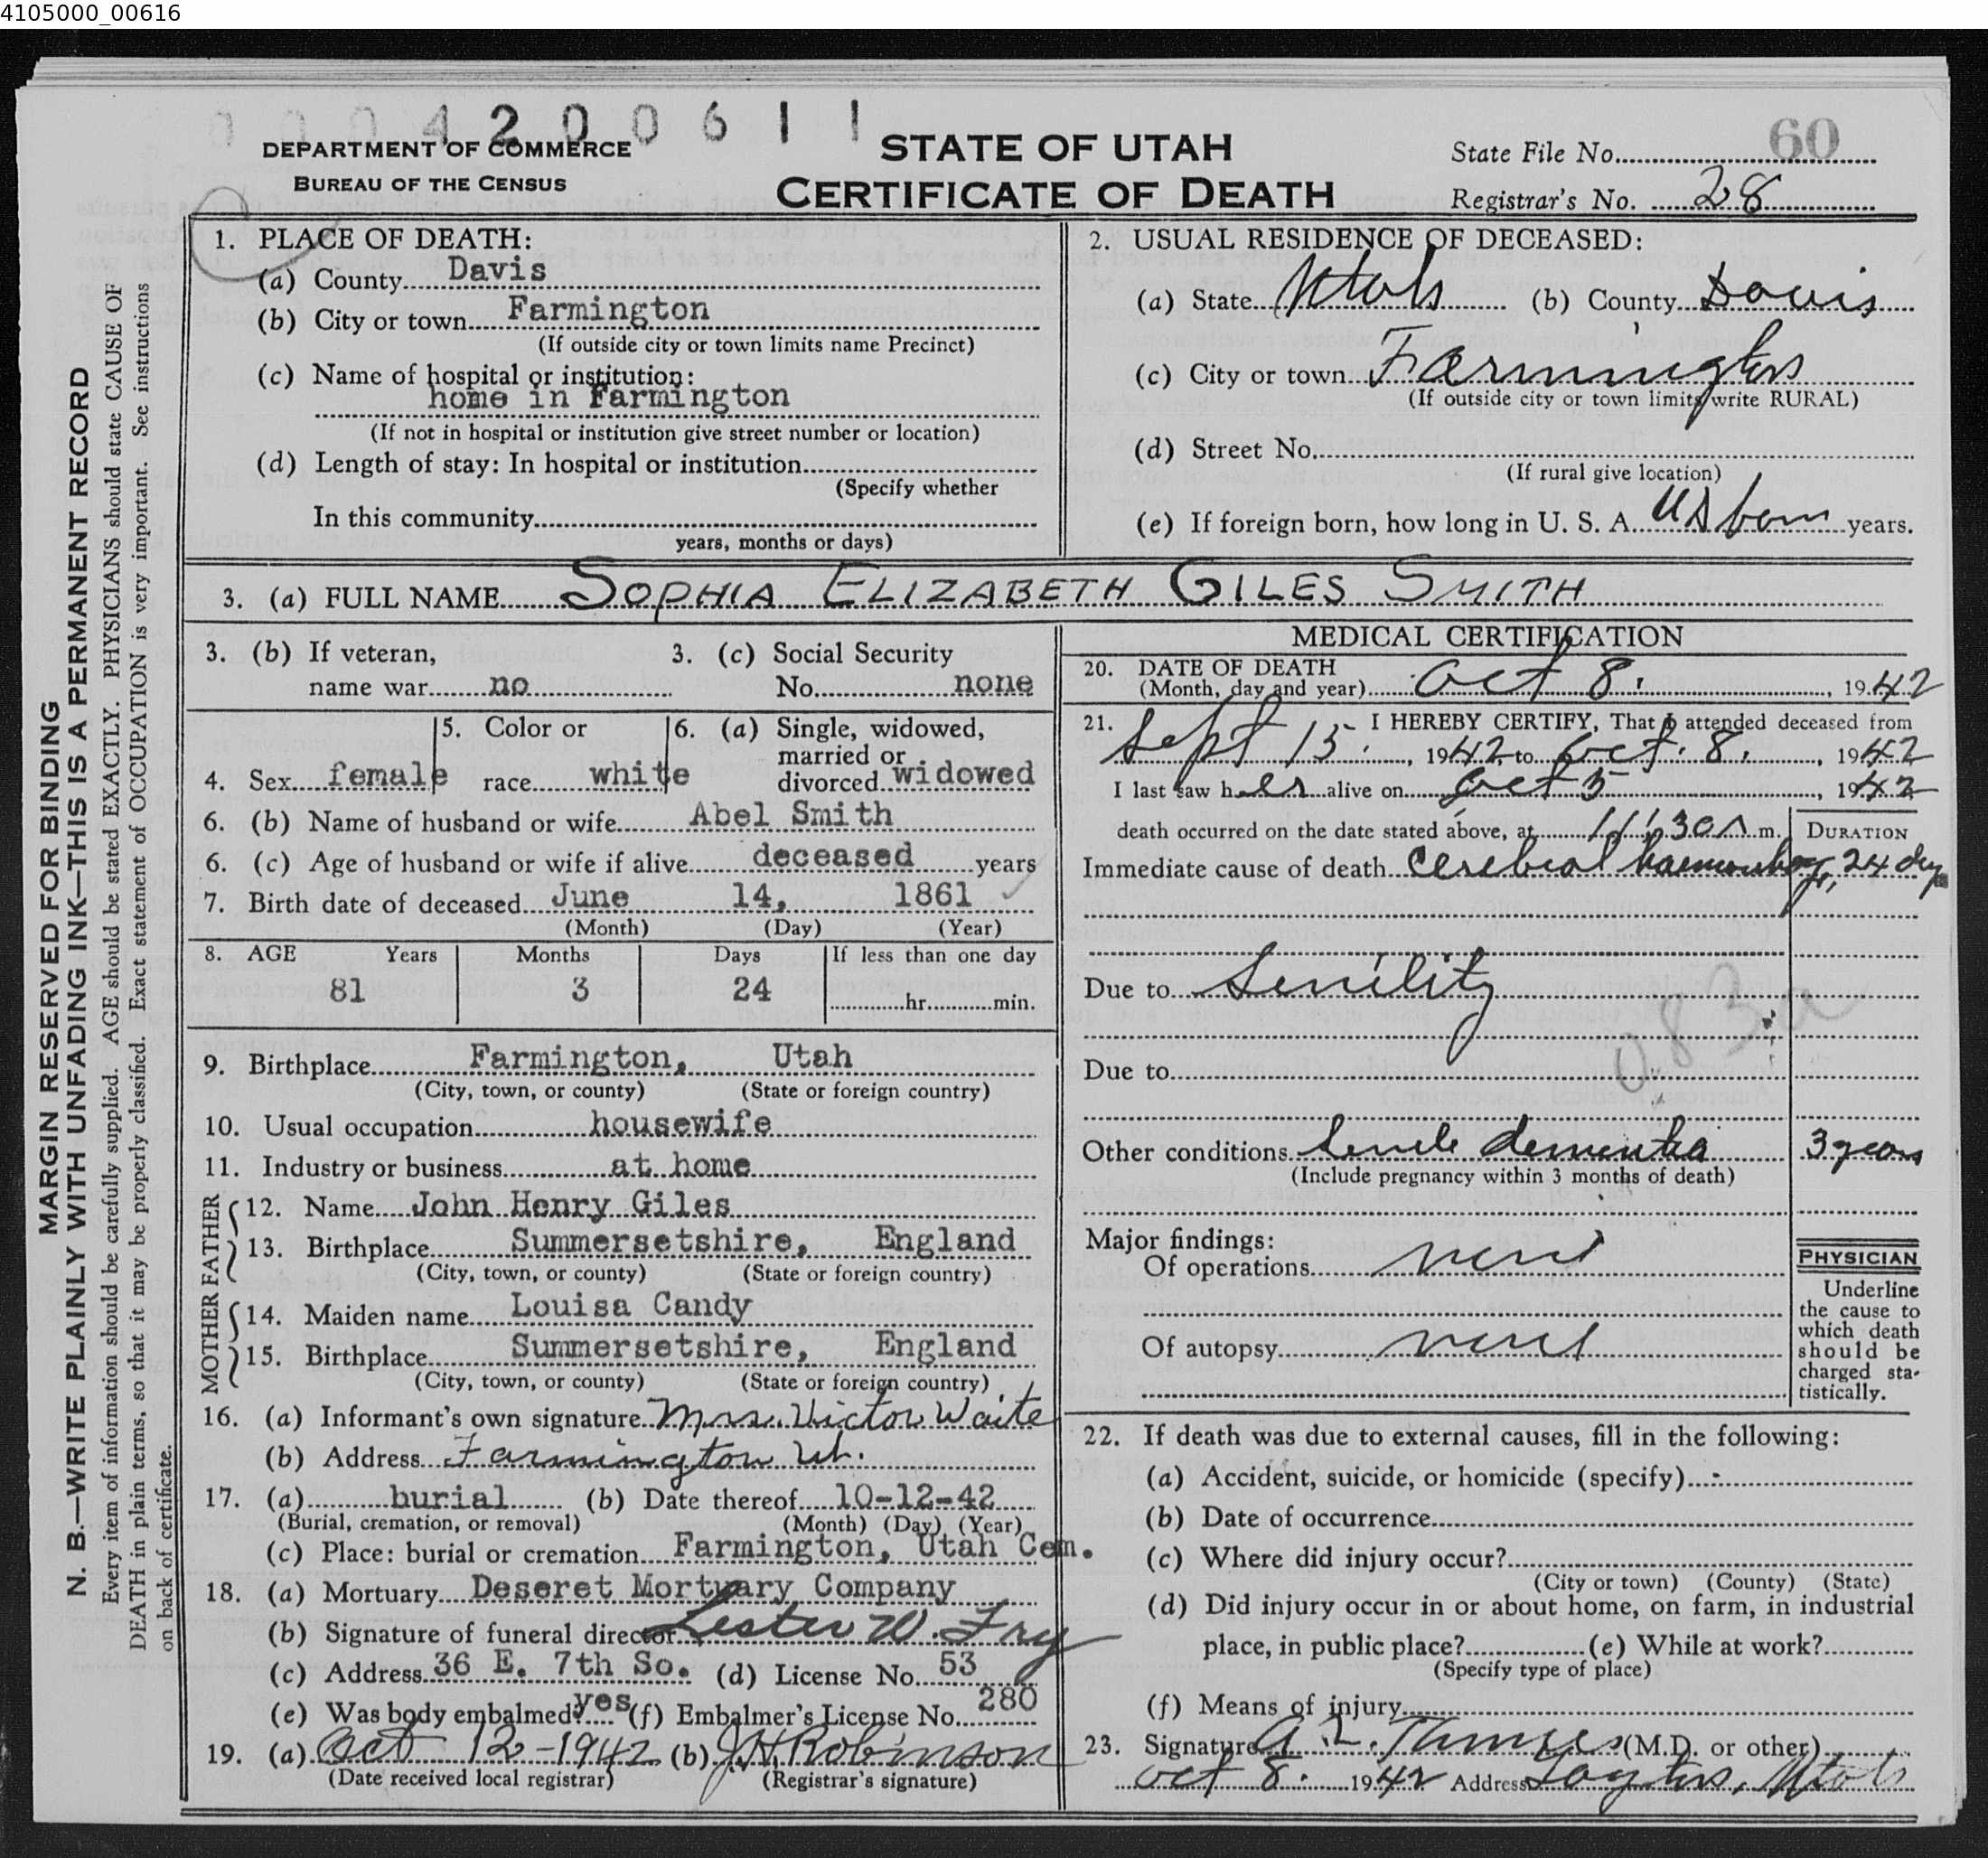 4105000_00616
0 0 0 4 2 0 0 6 1 1
DEPARTMENT OF COMMERCE
BUREAU OF THE CENSUS
STATE OF UTAH
CERTIFICATE OF DEATH
State File No. 60
Registrar's No. 28
MARGIN RESERVED FOR BINDING
N. B.—WRITE PLAINLY WITH UNFADING INK—THIS IS A PERMANENT RECORD
Every item of information should be carefully supplied. AGE should be stated EXACTLY. PHYSICIANS should state CAUSE OF
DEATH in plain terms, so that it may be properly classified. Exact statement of OCCUPATION is very important. See instructions
on back of certificate.
1. PLACE OF DEATH:
(a) County Davis
(b) City or town Farmington
(If outside city or town limits name Precinct)
(c) Name of hospital or institution:
home in Farmington
(If not in hospital or institution give street number or location)
(d) Length of stay: In hospital or institution
(Specify whether
In this community
years, months or days)
2. USUAL RESIDENCE OF DECEASED:
(a) State Utah (b) County Davis
(c) City or town Farmington
(If outside city or town limits write RURAL)
(d) Street No.
(If rural give location)
(e) If foreign born, how long in U. S. A. US born years.
3. (a) FULL NAME SOPHIA ELIZABETH GILES SMITH
3. (b) If veteran,
name war no
3. (c) Social Security
No. none
4. Sex female
5. Color or
race white
6. (a) Single, widowed,
married or
divorced widowed
6. (b) Name of husband or wife Abel Smith
6. (c) Age of husband or wife if alive deceased years
7. Birth date of deceased June 14, 1861
(Month) (Day) (Year)
8. AGE Years Months Days If less than one day
81 3 24 hr. min.
9. Birthplace Farmington, Utah
(City, town, or county) (State or foreign country)
10. Usual occupation housewife
11. Industry or business at home
FATHER
12. Name John Henry Giles
13. Birthplace Summersetshire, England
(City, town, or county) (State or foreign country)
MOTHER
14. Maiden name Louisa Candy
15. Birthplace Summersetshire, England
(City, town, or county) (State or foreign country)
16. (a) Informant's own signature Mrs. Victor Waite
(b) Address Farmington Ut.
17. (a) burial (b) Date thereof 10-12-42
(Burial, cremation, or removal) (Month) (Day) (Year)
(c) Place: burial or cremation Farmington, Utah Cem.
18. (a) Mortuary Deseret Mortuary Company
(b) Signature of funeral director Lester W. Fry
(c) Address 36 E. 7th So. (d) License No. 53
(e) Was body embalmed? yes (f) Embalmer's License No. 280
19. (a) Oct 12-1942 (b) J H Robinson
(Date received local registrar) (Registrar's signature)
MEDICAL CERTIFICATION
20. DATE OF DEATH
(Month, day and year) Oct 8. , 1942
21. I HEREBY CERTIFY, That I attended deceased from
Sept 15. , 1942 to Oct. 8. , 1942
I last saw her alive on Oct 5 , 1942
death occurred on the date stated above, at 11:30 A m. DURATION
Immediate cause of death Cerebral haemorrhage, 24 dys
Due to Senility
083a
Due to
Other conditions Senile dementia 3 years
(Include pregnancy within 3 months of death)
Major findings:
Of operations
Of autopsy
PHYSICIAN
Underline
the cause to
which death
should be
charged sta-
tistically.
22. If death was due to external causes, fill in the following:
(a) Accident, suicide, or homicide (specify)
(b) Date of occurrence
(c) Where did injury occur?
(City or town) (County) (State)
(d) Did injury occur in or about home, on farm, in industrial
place, in public place? (e) While at work?
(Specify type of place)
(f) Means of injury
23. Signature A. Z. Tanner (M.D. or other)
Oct 8. 1942 Address Layton, Utah